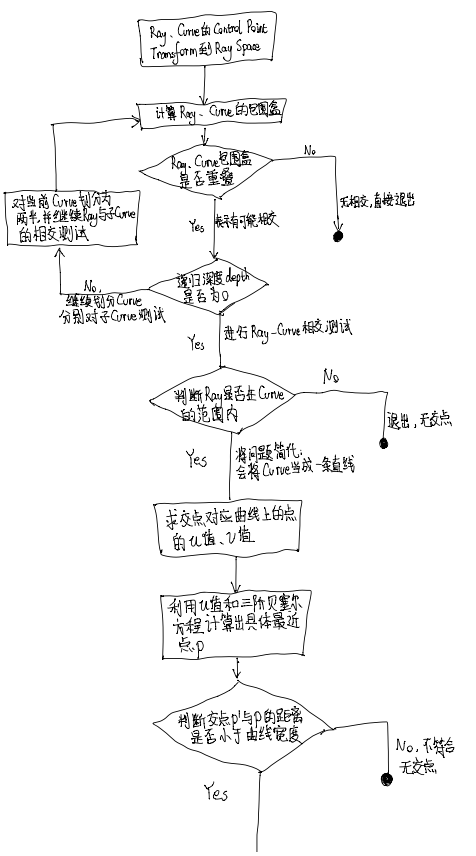 Ray、Curve的Control Point
Transform到Ray Space
计算Ray、Curve的包围盒
Ray、Curve包围盒
是否重叠
No
无相交,直接退出
Yes
表示有可能相交
对当前Curve划分为
两半,并继续Ray与子Curve
的相交测试
递归深度depth
是否为0
No,
继续划分Curve
分别对子Curve测试
Yes
进行Ray-Curve相交测试
判断Ray是否在Curve
的范围内
No
退出,无交点
Yes
将问题简化:
会将Curve当成一条直线
求交点对应曲线上的点
的u值、v值
利用u值和三阶贝塞尔
方程计算出具体最近
点p
判断交点p'与p的距离
是否小于曲线宽度
No,不符合
无交点
Yes